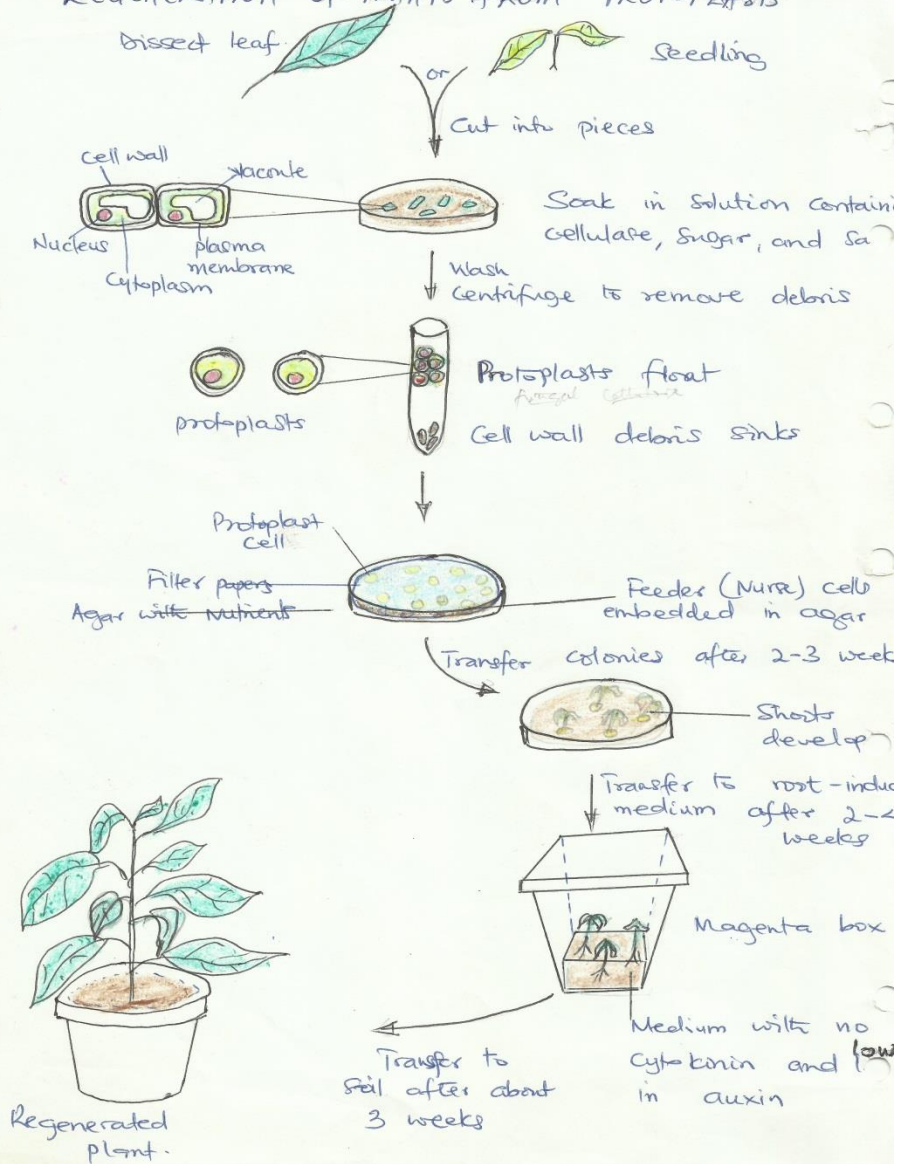 Regeneration of Plants from Protoplasts
Dissect leaf
or
Seedling
Cut into pieces
Cell wall
Vacoule
Nucleus
Cytoplasm
plasma
membrane
Soak in solution containi
cellulase, sugar, and sa
Wash
Centrifuge to remove debris
protoplasts
Protoplasts float
Cell wall debris sinks
Protoplast
cell
Filter papers
Agar with Nutrients
Feeder (Nurse) cells
embedded in agar
Transfer colonies after 2-3 week
Shoots
develop
Transfer to root-induc
medium after 2-
weeks
Magenta box
Medium with no
Cytokonin and low
in auxin
Transfer to
Soil after about
3 weeks
Regenerated
plant.